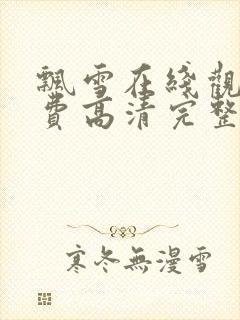 飄雪在綫觀
費高清完整
寒冬無漫雪